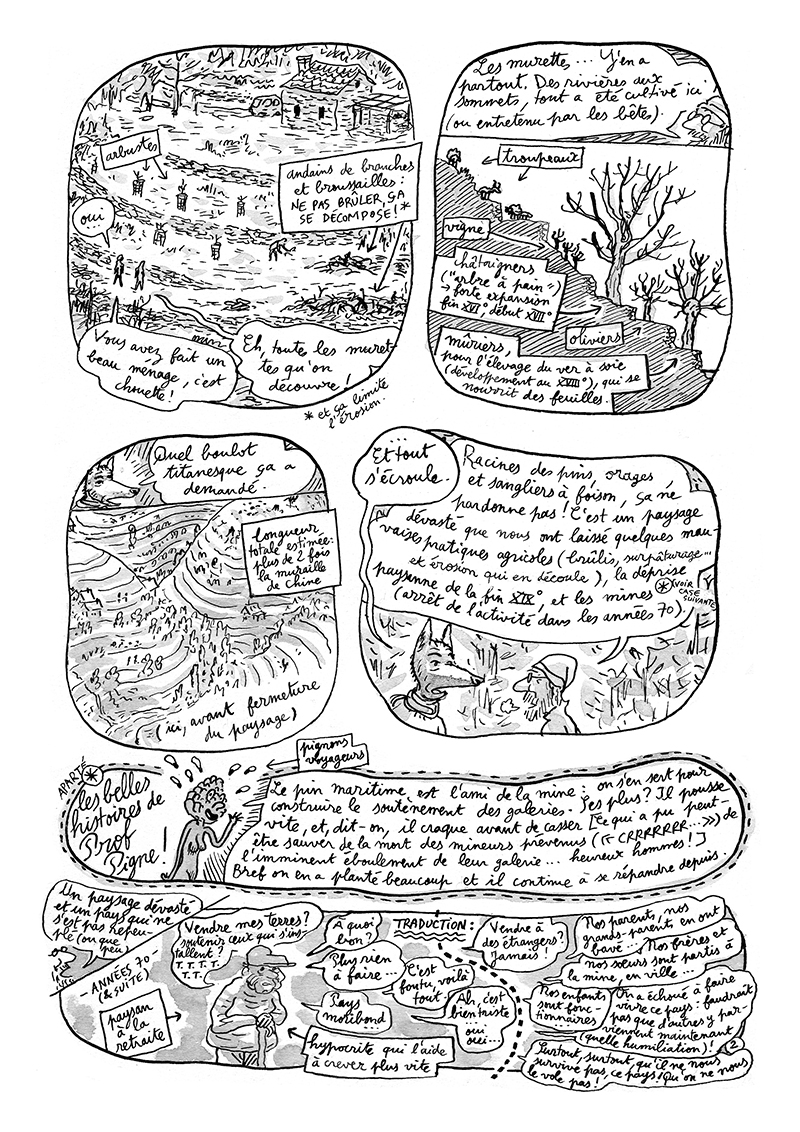 arbustes
andains de branches
et broussailles :
NE PAS BRÛLER, ÇA
SE DÉCOMPOSE ! *
oui
Vous avez fait un
beau ménage, c'est
chouette !
min
Eh, toutes les muret-
tes qu'on
découvre !
* et ça limite
l'érosion.
Les murettes... Y'en a
partout. Des rivières aux
sommets, tout a été cultivé ici
(ou entretenu par les bêtes).
troupeaux
vigne
châtaigners
("arbre à pain")
→ forte expansion
fin XVI°, début XVII°
oliviers
mûriers,
pour l'élevage du ver à soie
(développement au XVIII°), qui se
nourrit des feuilles.
Quel boulot
titanesque ça a
demandé.
longueur
totale estimée :
plus de 2 fois
la muraille
de Chine
(ici, avant fermeture
du paysage)
...
Et tout
s'écroule.
Racines des pins, orages
et sangliers à foison, ça ne
pardonne pas ! C'est un paysage
dévasté que nous ont laissé quelques mau-
vaises pratiques agricoles (brûlis, surpâturage...
et érosion qui en découle), la déprise
paysanne de la fin XIX°, et les mines *
(arrêt de l'activité dans les années 70).
(VOIR
CASE
SUIVANTE
APARTÉ
*
les belles
histoires de
Prof
Pigne !
pignons
voyageurs
Le pin maritime est l'ami de la mine : on s'en sert pour
construire le soutènement des galeries. Ses plus ? Il pousse
vite, et, dit-on, il craque avant de casser [ce qui a pu peut-
être sauver de la mort des mineurs prévenus (« CRRRRRRR... ») de
l'imminent éboulement de leur galerie... heureux hommes !]
Bref on en a planté beaucoup et il continue à se répandre depuis.
Un paysage dévasté
et un pays qui ne
s'est pas repeu-
plé (ou que
peu)
- ANNÉES 70
(& SUITE)
paysan
à la
retraite
Vendre mes terres ?
Soutenir ceux qui s'ins-
tallent ?
T.T.T.T.
T.T...
À quoi
bon ?
Plus rien
à faire...
C'est
foutu, voilà
tout.
Pays
moribond...
Ah, c'est
bien triste
... oui
oui...
hypocrite qui l'aide
à crever plus vite
TRADUCTION :
Vendre à
des étrangers ?
Jamais !
Nos parents, nos
grands-parents en ont
bavé.
Nos frères et
nos sœurs sont partis à
la mine, en ville...
Nos enfants
sont fonc-
tionnaires
On a échoué à faire
vivre ce pays : faudrait
pas que d'autres y par-
viennent maintenant
(quelle humiliation) !
Surtout, surtout qu'il ne nous
survive pas, ce pays ! Qu'on ne nous
le vole pas !
2